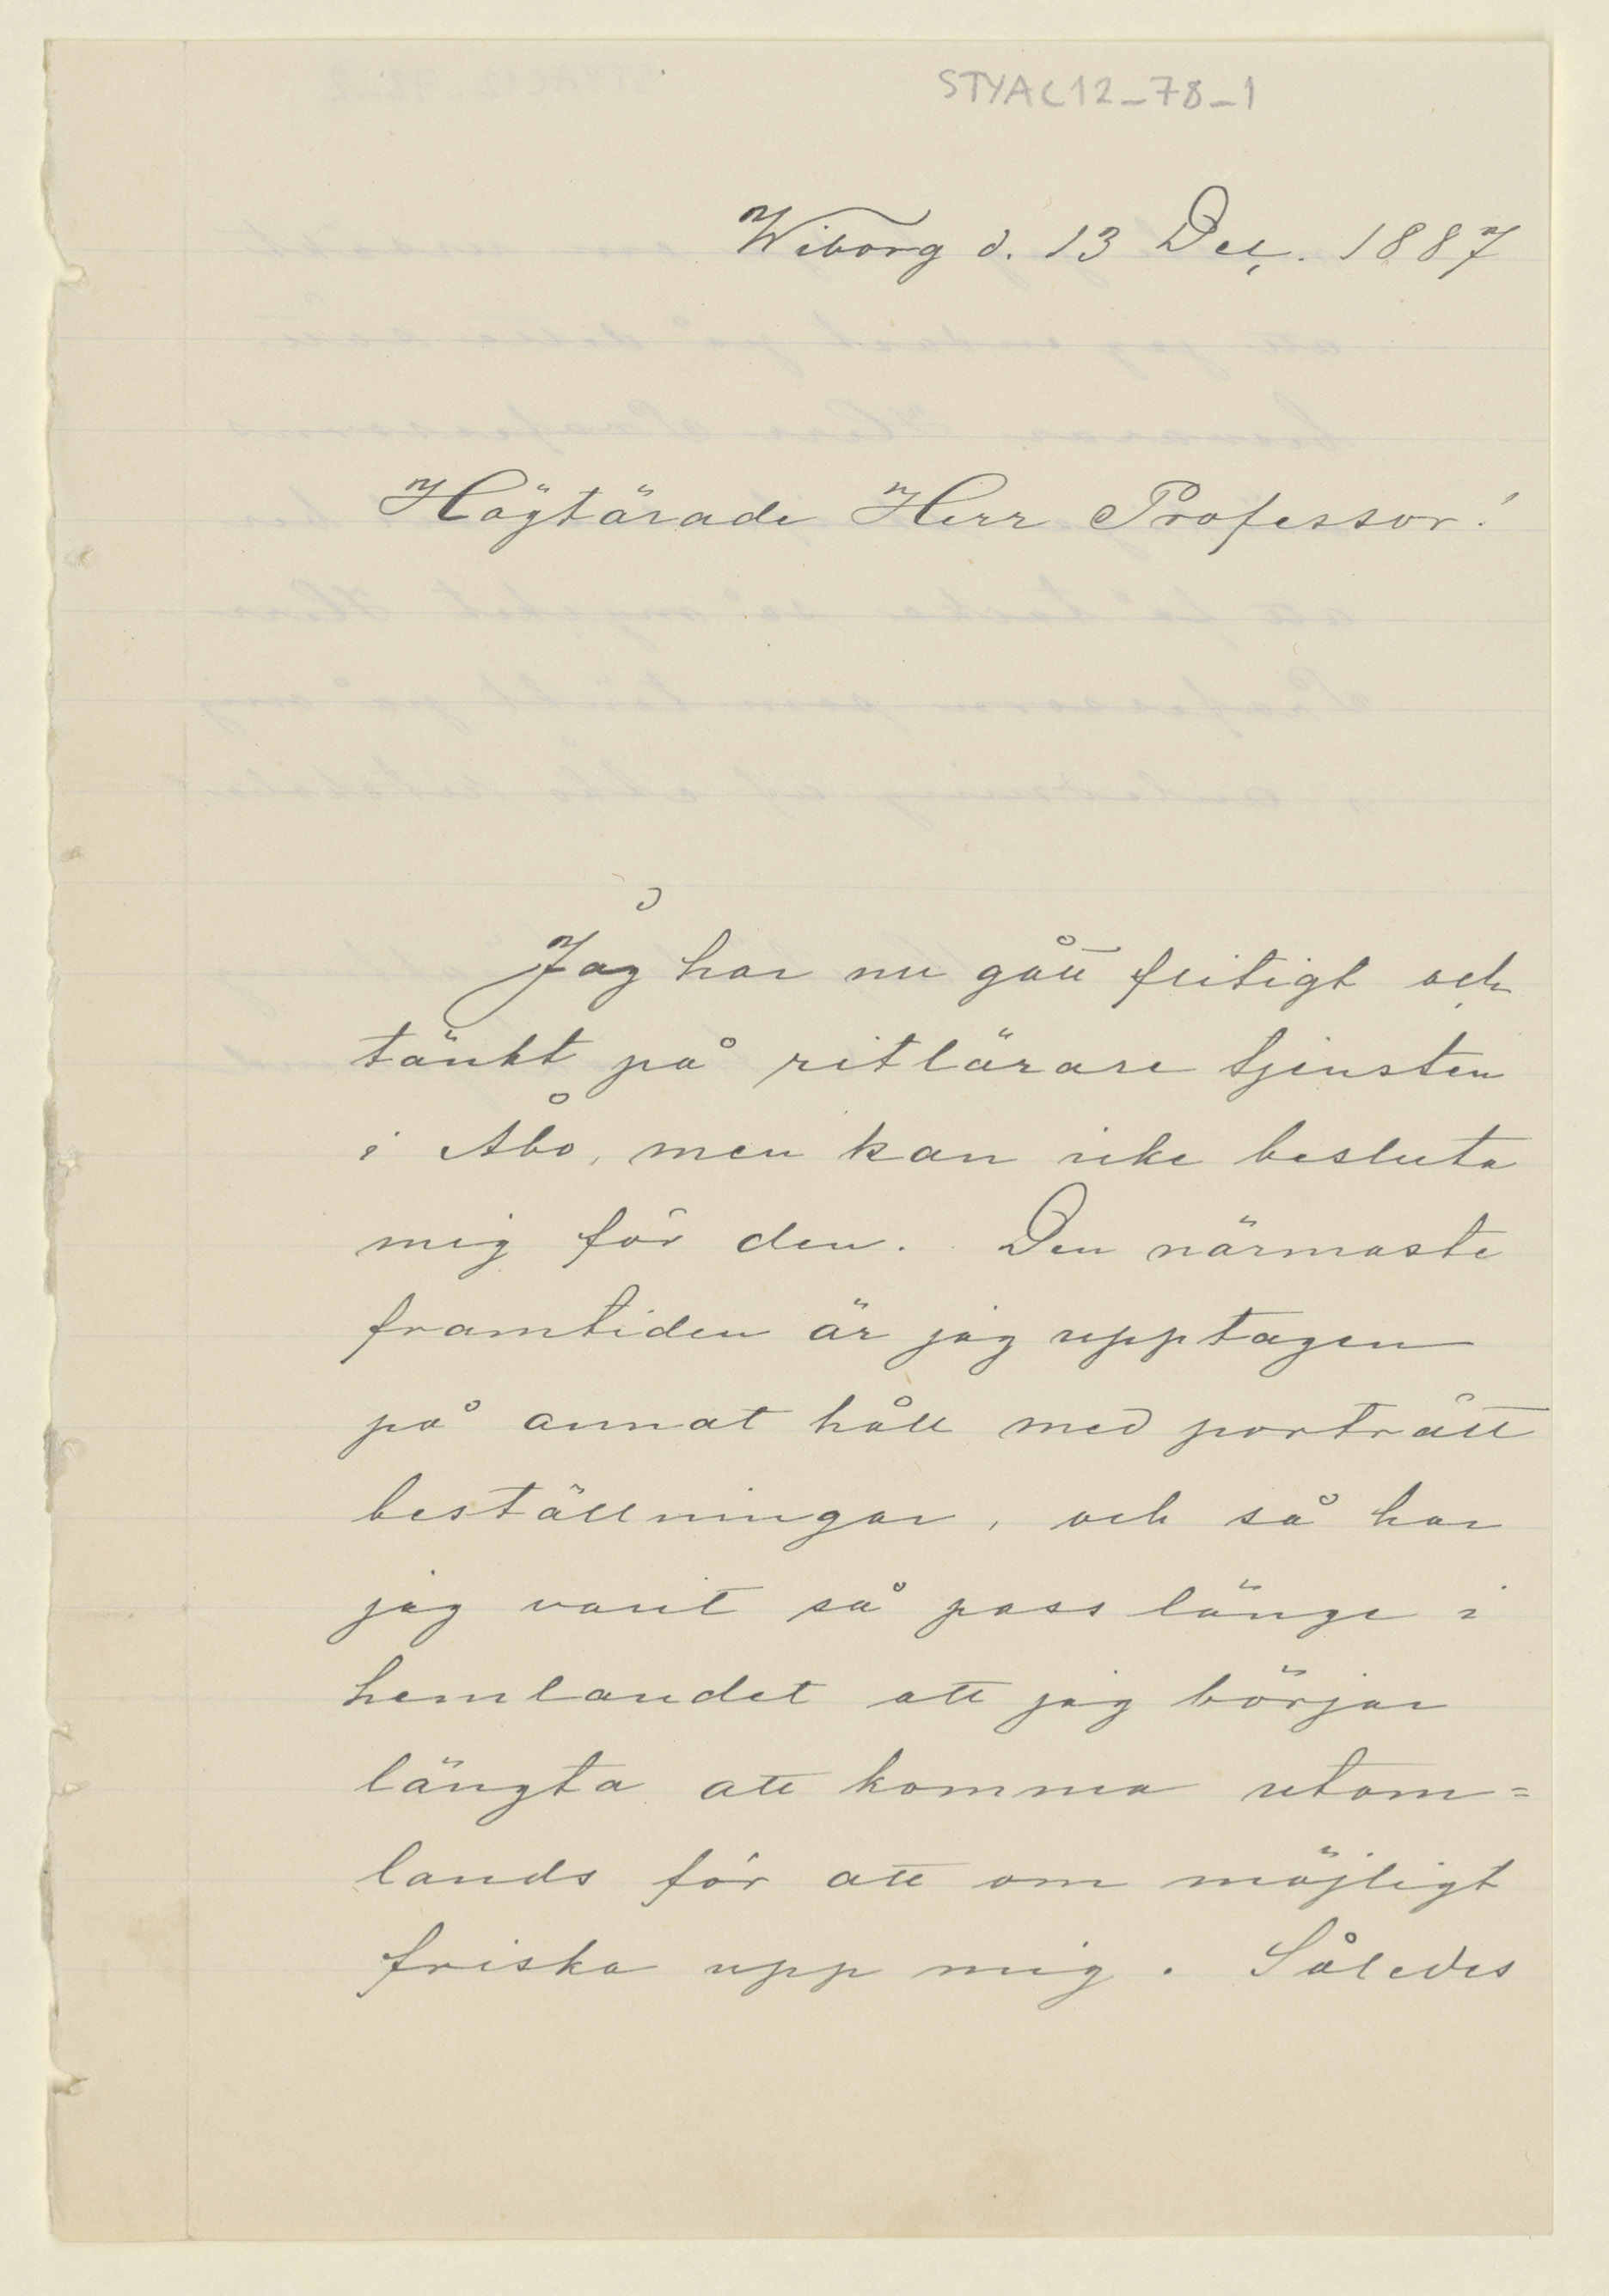 STYAC12_78_1
Wiborg d. 13 Dec. 1887
Högtärade Herr Professor!
Jag har nu gått flitigt och
tänkt på ritlärare tjensten
i Åbo, men kan icke besluta
mig för den. Den närmaste
framtiden är jag upptagen
på annat håll med porträtt
beställningar, och så har
jag varit så pass länge i
hemlandet att jag börjar
längta att komma utom=
lands för att om möjligt
friska upp mig. Således